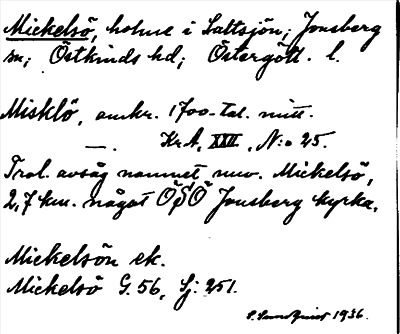 Mickelsö, holme i Saltsjön, Jonsberg
sn; Östkinds hd; Östergötl. l.
Misklö, omkr. 1700-tal. mitt.
—. KrA, XXII, N:o 25.
Trol. avsåg namnet nuv. Mickelsö,
2,7 km. något ÖSÖ Jonsberg kyrka.
Mickelsön ek.
Mickelsö G.56, Sj: 251.
S. Sundquist 1936.